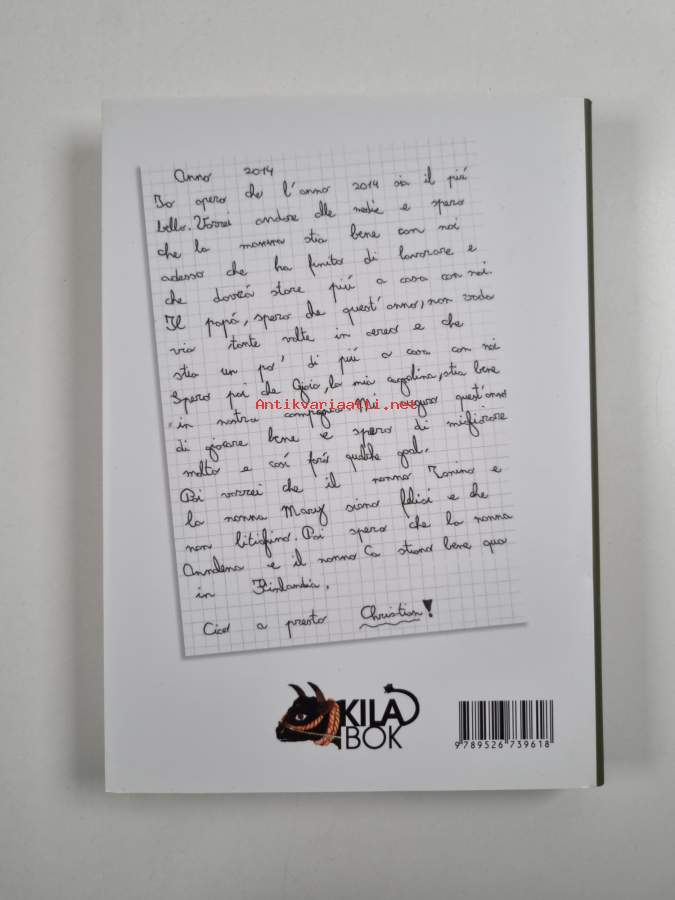 Anno 2014
Io spero che l'anno 2014 sia il piú
bello. Vorrei andare alle medie e spero
che la mamma stia bene con noi
adesso che ha finito di lavorare e
che dovrá stare piú a casa con noi.
Il papá, spero che quest'anno, non vada
via tante volte in aereo e che
stia un po' di piú a casa con noi
Spero poi che Gioia, la mia cagnolina, stia bene
in nostra compagnia. Mi auguro quest'anno
di giocare bene e spero di migliorare
molto e cosí faró qualche goal.
Poi vorrei che il nonno Tonino e
la nonna Mary siano felici e che
non litighino. Poi spero che la nonna
Anndena e il nonno Ca stiano bene qua
in Finlandia.
Ciao a presto Christian!
Antikvariaatti.net
KILA
BOK
9 789526 739618